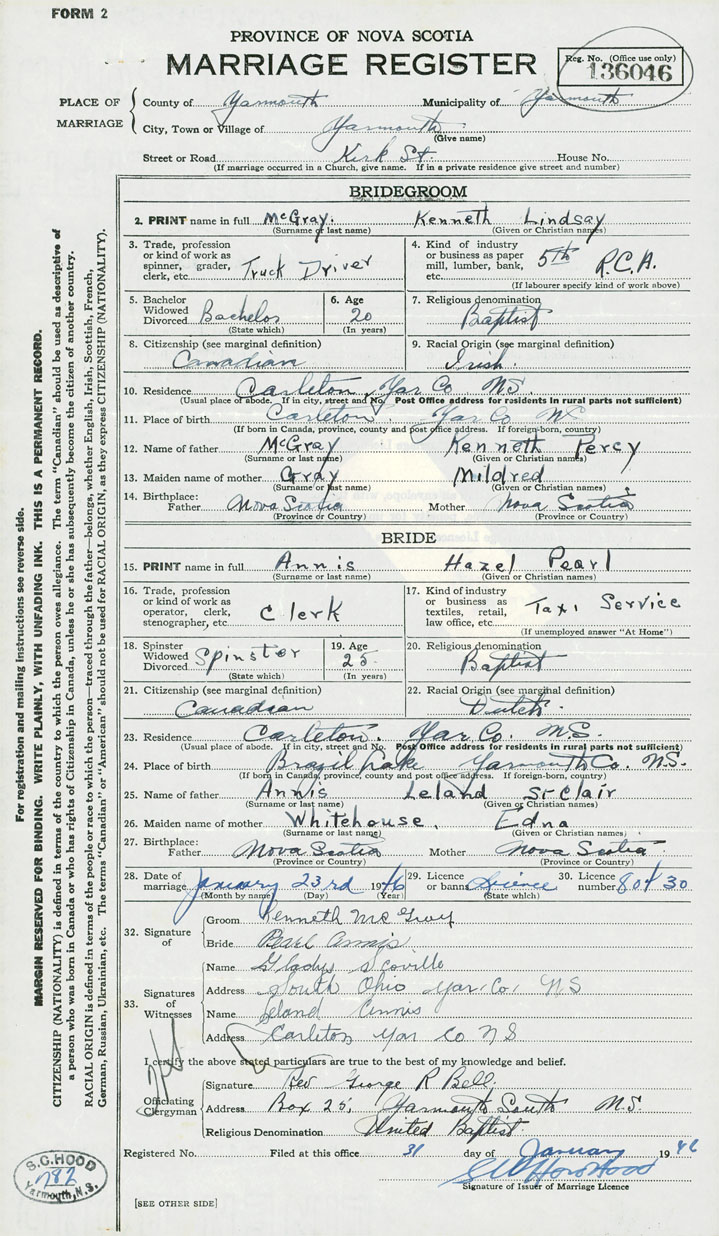 FORM 2
PROVINCE OF NOVA SCOTIA
MARRIAGE REGISTER
Reg. No. (Office use only)
136046
PLACE OF MARRIAGE
County of Yarmouth Municipality of Yarmouth
City, Town or Village of Yarmouth
(Give name)
Street or Road Kirk St. House No.
(If marriage occurred in a Church, give name. If in a private residence give street and number)
BRIDEGROOM
2. PRINT name in full McGray. Kenneth Lindsay
(Surname or last name) (Given or Christian names)
3. Trade, profession or kind of work as spinner, grader, clerk, etc. Truck Driver
4. Kind of industry or business as paper mill, lumber, bank, etc. 5th R.C.A.
(If labourer specify kind of work above)
5. Bachelor Widowed Divorced Bachelor
(State which)
6. Age 20
(In years)
7. Religious denomination
Baptist
8. Citizenship (see marginal definition)
Canadian
9. Racial Origin (see marginal definition)
Irish.
10. Residence Carleton, Yar Co N.S.
(Usual place of abode. If in city, street and No. Post Office address for residents in rural parts not sufficient)
11. Place of birth Carleton. Yar Co NS
(If born in Canada, province, county and post office address. If foreign-born, country)
12. Name of father McGray Kenneth Percy
(Surname or last name) (Given or Christian names)
13. Maiden name of mother Gray Mildred
(Surname or last name) (Given or Christian names)
14. Birthplace: Father Nova Scotia Mother Nova Scotia
(Province or Country) (Province or Country)
BRIDE
15. PRINT name in full Annis Hazel Pearl
(Surname or last name) (Given or Christian names)
16. Trade, profession or kind of work as operator, clerk, stenographer, etc. Clerk
17. Kind of industry or business as textiles, retail, law office, etc. Taxi Service
(If unemployed answer "At Home")
18. Spinster Widowed Divorced Spinster
(State which)
19. Age 25
(In years)
20. Religious denomination
Baptist
21. Citizenship (see marginal definition)
Canadian
22. Racial Origin (see marginal definition)
Dutch.
23. Residence Carleton. Yar Co. N.S.
(Usual place of abode. If in city, street and No. Post Office address for residents in rural parts not sufficient)
24. Place of birth Brazil Lake Yarmouth Co. N.S.
(If born in Canada, province, county and post office address. If foreign-born, country)
25. Name of father Annis Leland St Clair
(Surname or last name) (Given or Christian names)
26. Maiden name of mother Whitehouse, Edna
(Surname or last name) (Given or Christian names)
27. Birthplace: Father Nova Scotia Mother Nova Scotia
(Province or Country) (Province or Country)
28. Date of marriage January 23rd 1946
(Month by name) (Day) (Year)
29. Licence or banns License
(State which)
30. Licence number 80430
32. Signature of
Groom Kenneth McGray
Bride Pearl Annis
33. Signatures of Witnesses
Name Gladys Scovillo
Address South Ohio Yar. Co, NS
Name Leland Annis
Address Carleton Yar Co NS
I certify the above stated particulars are true to the best of my knowledge and belief.
Officiating Clergyman
Signature Rev George R Bell.
Address Box 25, Yarmouth South N.S.
Religious Denomination United Baptist
Registered No. Filed at this office 31 day of January 1946
Signature of Issuer of Marriage Licence
[SEE OTHER SIDE]
S.C. HOOD
782
Yarmouth, N.S.
For registration and mailing instructions see reverse side.
MARGIN RESERVED FOR BINDING. WRITE PLAINLY, WITH UNFADING INK. THIS IS A PERMANENT RECORD.
CITIZENSHIP (NATIONALITY) is defined in terms of the country to which the person owes allegiance. The term "Canadian" should be used as descriptive of
a person who was born in Canada or who has rights of Citizenship in Canada, unless he or she has subsequently become the citizen of another country.
RACIAL ORIGIN is defined in terms of the people or race to which the person—traced through the father—belongs, whether English, Irish, Scottish, French,
German, Russian, Ukrainian, etc. The terms "Canadian" or "American" should not be used for RACIAL ORIGIN, as they express CITIZENSHIP (NATIONALITY).